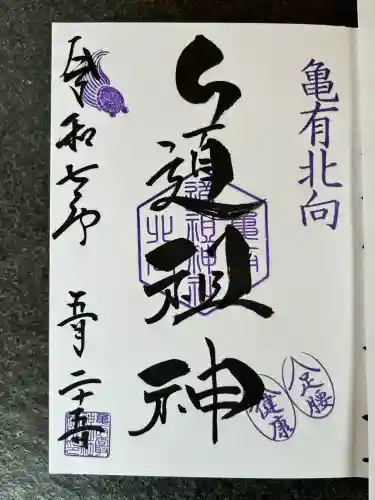 亀有北向
道祖神
令和七年 五月二十五日
亀有
道祖神
北向
足腰
健康